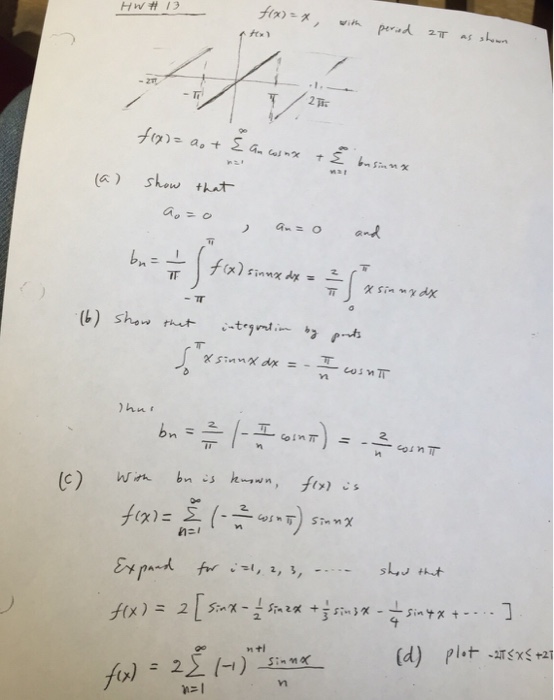 HW # 13
f(x) = x, with period 2π as shown
f(x)
-2π
-π
π
2π
f(x) = a₀ + Σ_{n=1}^{∞} aₙ cos nx + Σ_{n=1}^{∞} bₙ sin nx
(a) show that
a₀ = 0 , aₙ = 0 and
bₙ = 1/π ∫_{-π}^{π} f(x) sin nx dx = 2/π ∫_{0}^{π} x sin nx dx
(b) show that integration by parts
∫_{0}^{π} x sin nx dx = - π/n cos nπ
Thus
bₙ = 2/π (- π/n cos nπ) = - 2/n cos nπ
(c) With bₙ is known, f(x) is
f(x) = Σ_{n=1}^{∞} (- 2/n cos nπ) sin nx
Expand for i=1, 2, 3, ----- show that
f(x) = 2 [ sin x - 1/2 sin 2x + 1/3 sin 3x - 1/4 sin 4x + ---- ]
f(x) = 2 Σ_{n=1}^{∞} (-1)^{n+1} sin nx / n (d) plot -2π ≤ x ≤ +2π